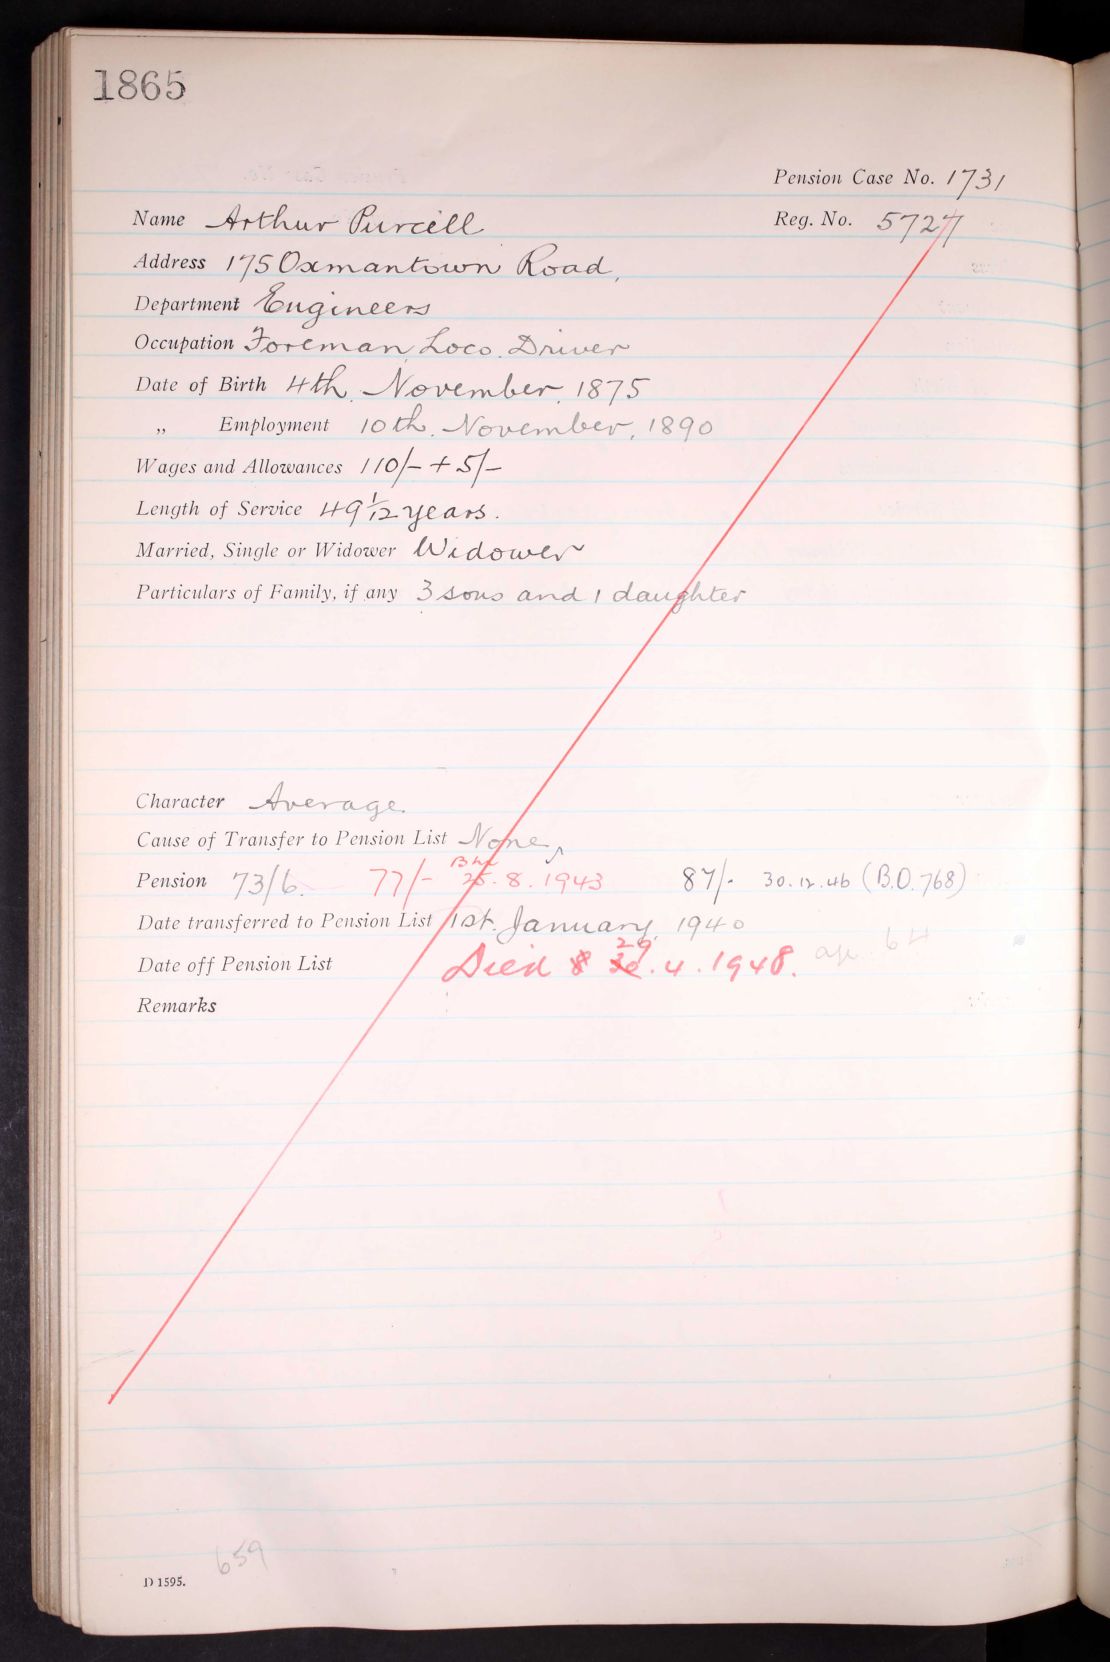 1865
Pension Case No. 1731
Name Arthur Purcell
Reg. No. 5727
Address 175 Oxmantown Road,
Department Engineers
Occupation Foreman Loco. Driver
Date of Birth 4th. November, 1875
„ Employment 10th. November, 1890
Wages and Allowances 110/- + 5/-
Length of Service 49 1/12 years.
Married, Single or Widower Widower
Particulars of Family, if any 3 sons and 1 daughter
Character Average.
Cause of Transfer to Pension List None
Pension 73/6. 77/- 25.8.1943 87/- 30.12.46 (B.O. 768)
Date transferred to Pension List 1st. January, 1940
29
Date off Pension List Died 8 30.4.1948. age 64
Remarks
659
D 1595.